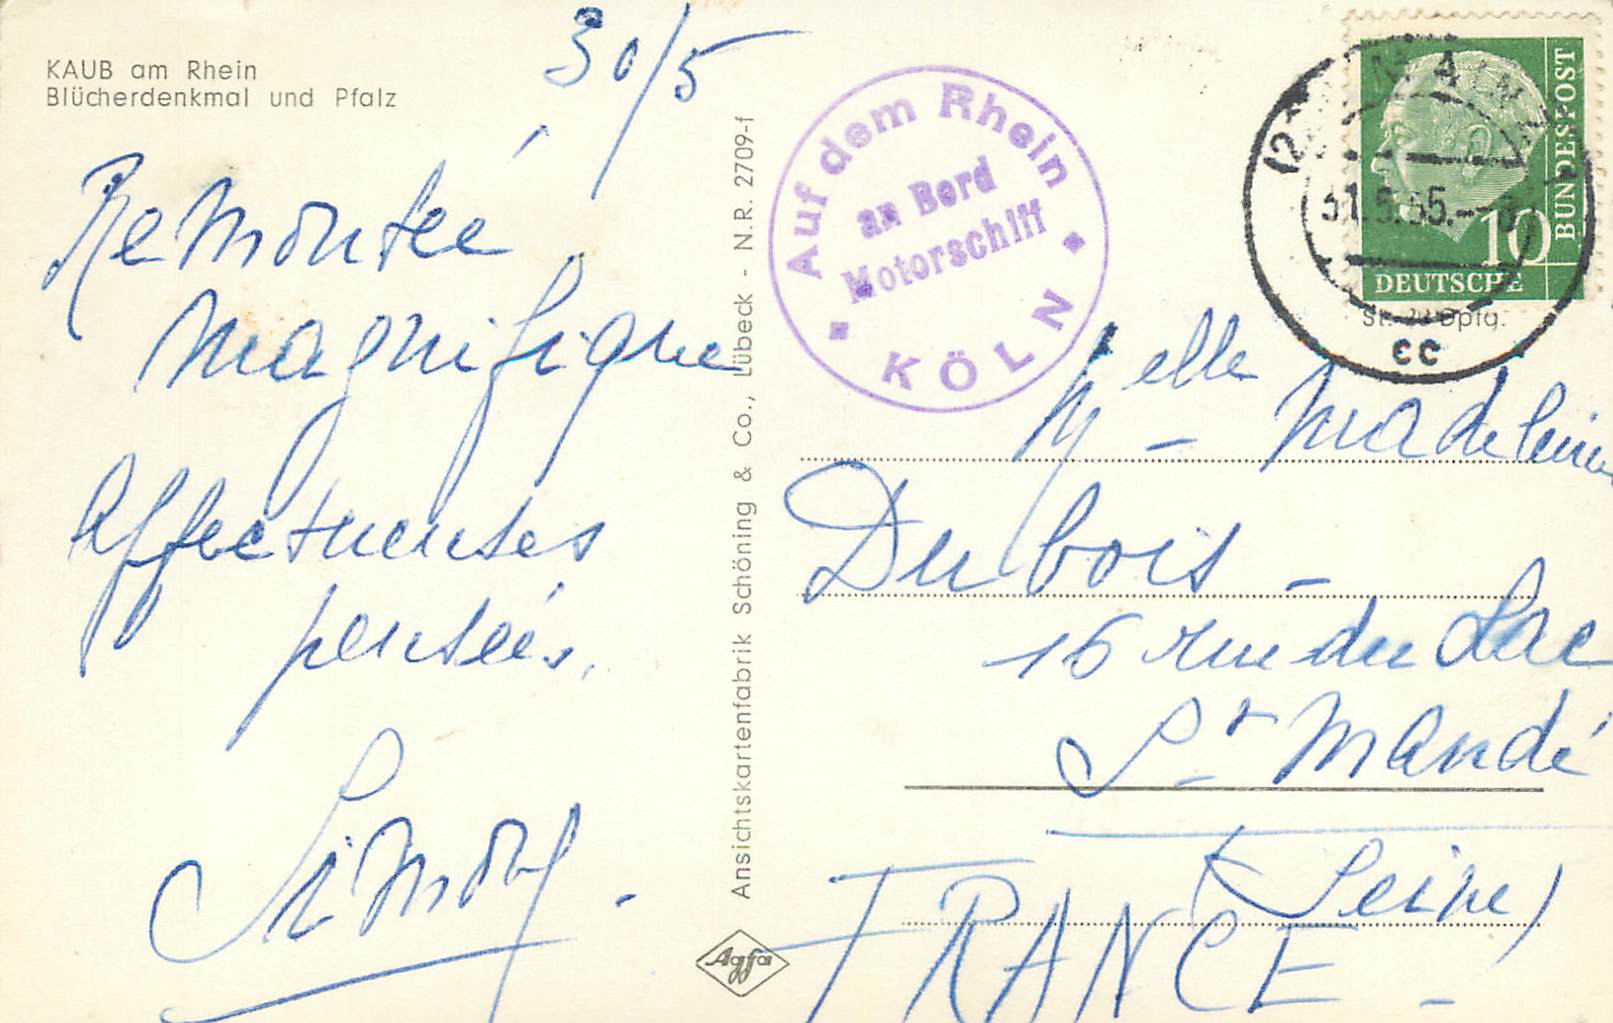 KAUB am Rhein
Blücherdenkmal und Pfalz
30/5
Remontée
magnifique
Affectueuses
pensées.
Simon
Ansichtskartenfabrik Schöning & Co., Lübeck - N.R. 2709-f
Agfa
Auf dem Rhein
an Bord
Motorschiff
KÖLN
BUNDESPOST
10
DEUTSCHE
cc
Melle - Madeleine
Dubois -
16 rue du Lac
St Mandé
(Seine)
FRANCE -